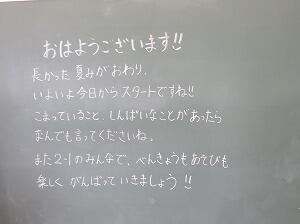 おはようございます!!
長かった夏みがおわり、
いよいよ今日からスタートですね!!
こまっていること、しんぱいなことがあったら
なんでも言ってくださいね。
また2-1のみんなで、べんきょうもあそびも
楽しくがんばっていきましょう!!